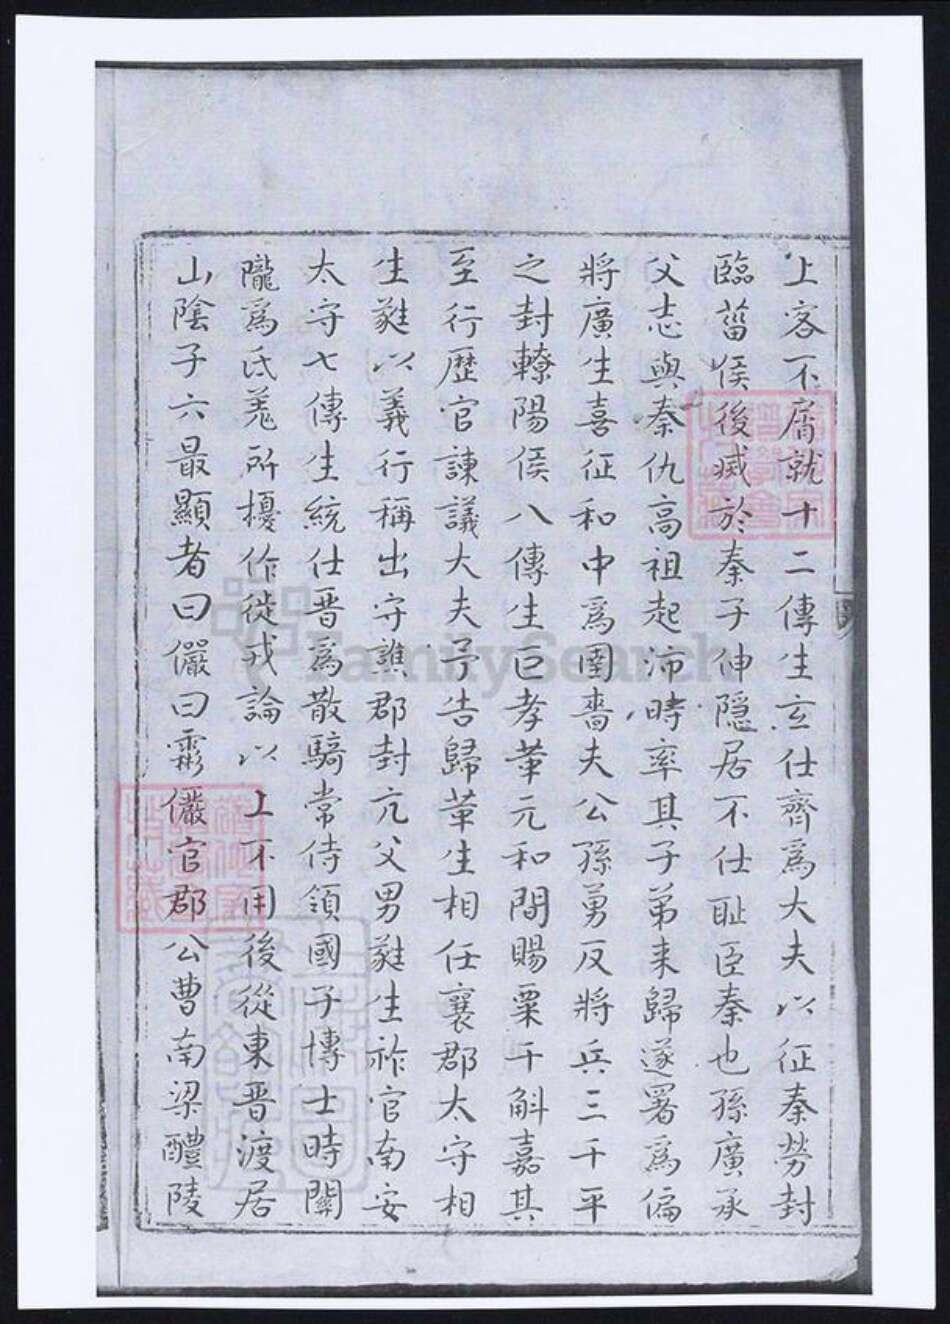 上客不屑就十二傳生玄仕齊爲大夫以征秦勞封
臨菑侯後滅於秦子伸隱居不仕耻臣秦也孫廣承
父志與秦仇高祖起沛時率其子弟来歸遂署爲偏
將廣生喜征和中爲圉嗇夫公孫勇反將兵三千平
之封轑陽侯八傳生巨孝華元和間賜粟千斛嘉其
至行歷官諫議大夫予告歸華生相任襄郡太守相
生蕤以義行稱出守譙郡封亢父男蕤生祚官南安
太守七傳生統仕晋爲散騎常侍領國子博士時關
隴爲氐羌所擾作徙戎論以 上不用後從東晋渡居
山陰子六最顯者曰儼曰霦儼官郡公曹南梁醴陵
FamilySearch